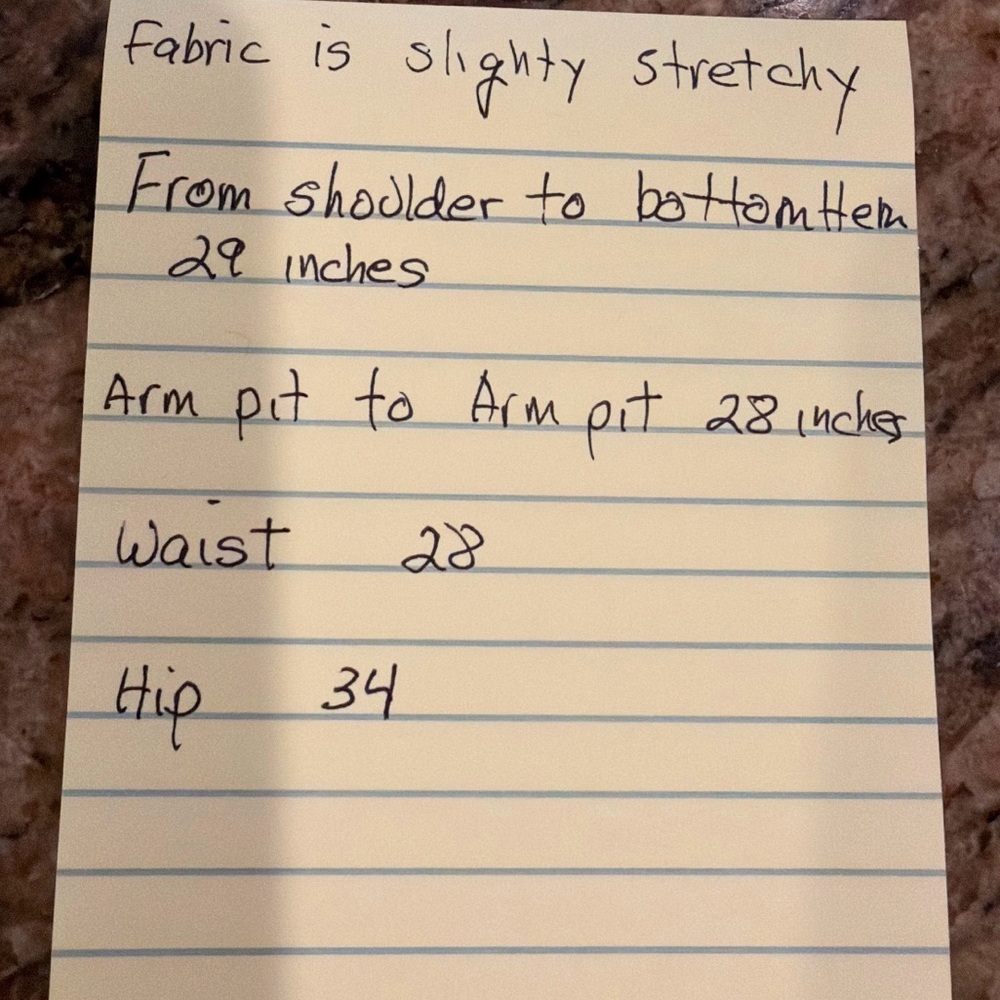 Fabric is slighty stretchy
From shoulder to bottom Hem
29 inches
Arm pit to Arm pit 28 inches
Waist 28
Hip 34